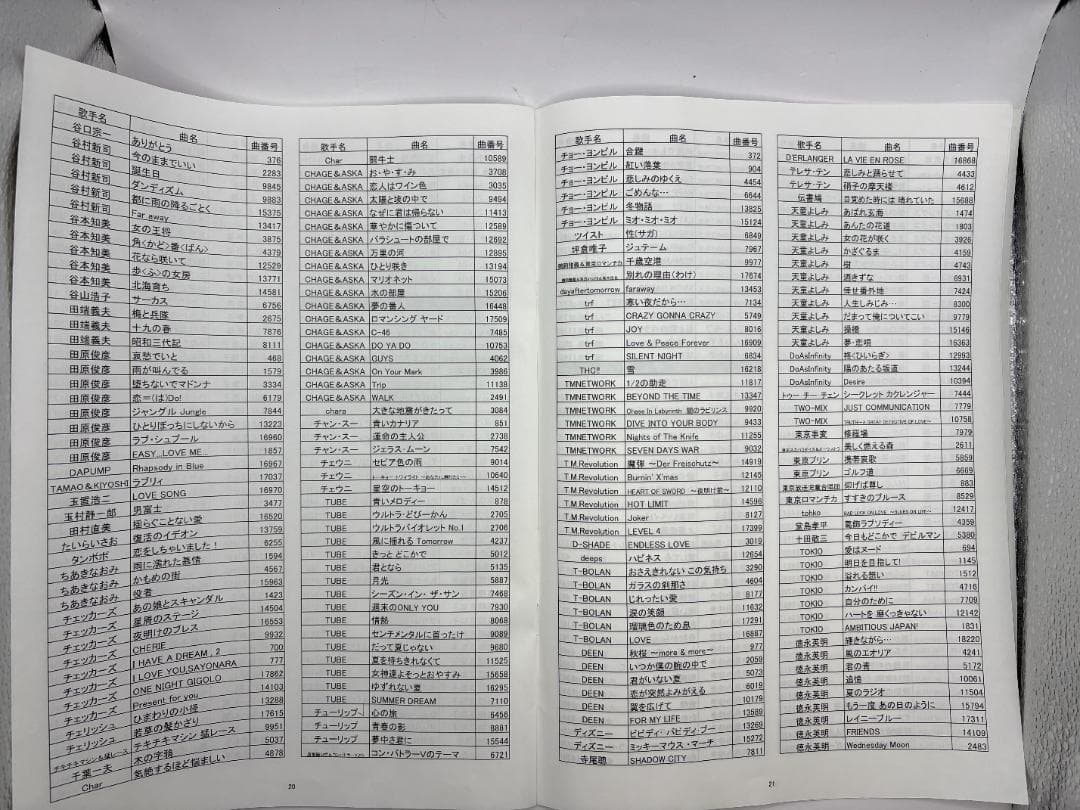 歌手名 曲名 曲番号
谷口宗一 ありがとう 376
谷村新司 今のままでいい 2283
谷村新司 誕生日 9845
谷村新司 ダンディズム 9883
谷村新司 都に雨の降るごとく 15375
谷村新司 Far away 13417
谷本知美 女の王将 3875
谷本知美 角(かど)番(ばん) 4379
谷本知美 花なら咲いて 12529
谷本知美 歩(ふ)の女房 13771
谷本知美 北海育ち 14581
谷山浩子 サーカス 6756
田端義夫 梅と兵隊 2675
田端義夫 十九の春 7876
田端義夫 昭和三代記 8111
田原俊彦 哀愁でいと 468
田原俊彦 雨が叫んでる 1579
田原俊彦 堕ちないでマドンナ 3334
田原俊彦 恋=(は)Do! 6179
田原俊彦 ジャングル Jungle 7844
田原俊彦 ひとりぼっちにしないから 13223
田原俊彦 ラブ・シュプール 16960
田原俊彦 EASY...LOVE ME... 1857
DAPUMP Rhapsody in Blue 16967
TAMAO&KIYOSHI ラブリィ 17037
玉置浩二 LOVE SONG 16970
玉村静一郎 男富士 3477
田村直美 揺らぐことない愛 16520
たいらいさお 復活のイデオン 13759
タンポポ 恋をしちゃいました! 6255
ちあきなおみ 雨に濡れた慕情 1594
ちあきなおみ かもめの街 4567
ちあきなおみ 役者 15963
チェッカーズ あの娘とスキャンダル 1423
チェッカーズ 星屑のステージ 14504
チェッカーズ 夜明けのブレス 16553
チェッカーズ CHERIE 9932
チェッカーズ I HAVE A DREAM , 2 700
チェッカーズ I LOVE YOU,SAYONARA 777
チェッカーズ ONE NIGHT GIGOLO 17862
チェッカーズ Present for you 14103
チェリッシュ ひまわりの小怪 13288
チェリッシュ 若草の髪かざり 17615
チキチキマシン 猛レース 9951
千葉一夫 木の字鴉 5037
Char 気絶するほど悩ましい 4878
歌手名 曲名 曲番号
Char 闘牛士 10589
CHAGE&ASKA お・や・す・み 3708
CHAGE&ASKA 恋人はワイン色 3035
CHAGE&ASKA 太陽と埃の中で 9494
CHAGE&ASKA なぜに君は帰らない 11413
CHAGE&ASKA 華やかに傷ついて 12589
CHAGE&ASKA パラシュートの部屋で 12692
CHAGE&ASKA 万里の河 12895
CHAGE&ASKA ひとり咲き 13194
CHAGE&ASKA マリオネット 15073
CHAGE&ASKA 水の部屋 15206
CHAGE&ASKA 夢の番人 16448
CHAGE&ASKA ロマンシング ヤード 17509
CHAGE&ASKA C-46 7485
CHAGE&ASKA DO YA DO 10753
CHAGE&ASKA GUYS 4062
CHAGE&ASKA On Your Mark 3986
CHAGE&ASKA Trip 11138
CHAGE&ASKA WALK 2491
chara 大きな地震がきたって 3084
チャン・スー 青いカナリア 851
チャン・スー 運命の主人公 2738
チャン・スー ジェラス・ムーン 7542
チェウニ セピア色の雨 9014
チェウニ トーキョートワイライト 10640
チェウニ 星空のトーキョー 14512
TUBE 青いメロディー 878
TUBE ウルトラ・どびーかん 2705
TUBE ウルトラバイオレット No.1 2706
TUBE 風に揺れる Tomorrow 4237
TUBE きっと どこかで 5012
TUBE 君となら 5135
TUBE 月光 5887
TUBE シーズン・イン・ザ・サン 7468
TUBE 週末のONLY YOU 7930
TUBE 情熱 8068
TUBE センチメンタルに首ったけ 9089
TUBE だって夏じゃない 9680
TUBE 夏を待ちきれなくて 11525
TUBE 女神達よそっとおやすみ 15658
TUBE ゆずれない夏 16295
TUBE SUMMER DREAM 7110
チューリップ 心の旅 6456
チューリップ 青春の影 8881
チューリップ 夢中さ君に 15544
コン・バトラーVのテーマ 6721
20
歌手名 曲名 曲番号
チョー・ヨンピル 合鍵 372
チョー・ヨンピル 紅い落葉 904
チョー・ヨンピル 悲しみのゆくえ 4454
チョー・ヨンピル ごめんな… 6644
チョー・ヨンピル 冬物語 13825
チョー・ヨンピル ミオ・ミオ・ミオ 15124
ツイスト 性(サガ) 6849
坪倉唯子 ジュテーム 7967
千歳空港 9977
別れの理由(わけ) 17674
dayaftertomorrow faraway 13453
trf 寒い夜だから… 7134
trf CRAZY GONNA CRAZY 5749
trf JOY 8016
trf Love & Peace Forever 16909
trf SILENT NIGHT 6834
THC!! 雪 16218
TMNETWORK 1/2の助走 11817
TMNETWORK BEYOND THE TIME 13347
TMNETWORK Chase In Labyrinth 闇のラビリンス 9920
TMNETWORK DIVE INTO YOUR BODY 9433
TMNETWORK Nights of The Knife 11255
TMNETWORK SEVEN DAYS WAR 9032
T.M.Revolution 魔弾 ~Der Freischutz~ 14919
T.M.Revolution Burnin' X'mas 12115
T.M.Revolution HEART OF SWORD ~夜明け前~ 12110
T.M.Revolution HOT LIMIT 14596
T.M.Revolution Joker 8127
T.M.Revolution LEVEL 4 17399
D-SHADE ENDLESS LOVE 3019
deeps ハピネス 12654
T-BOLAN おさえきれない この気持ち 3290
T-BOLAN ガラスの斜想さ 4604
T-BOLAN じれったい愛 8177
T-BOLAN 涙の笑顔 11632
T-BOLAN 瑠璃色のため息 17291
T-BOLAN LOVE 16887
DEEN 秋桜 ~more & more~ 977
DEEN いつか僕の腕の中で 2059
DEEN 君がいない夏 5073
DEEN 恋が突然よみがえる 6019
DEEN 翼を広げて 10179
DEEN FOR MY LIFE 13589
ディズニー ビビディ・バビディ・ブー 13269
ディズニー ミッキーマウス・マーチ 15272
寺尾聰 SHADOW CITY 7811
歌手名 曲名 曲番号
D'ERLANGER LA VIE EN ROSE 16868
テレサ・テン 悲しみと踊らせて 4433
テレサ・テン 硝子の摩天楼 4612
伝書鳩 目覚めた時には 晴れていた 15688
天童よしみ あばれ玄海 1474
天童よしみ あんたの花道 1803
天童よしみ 女の花が咲く 3926
天童よしみ かざぐるま 4159
天童よしみ 樹 4743
天童よしみ 酒きずな 6931
天童よしみ 倖せ番外地 7424
天童よしみ 人生しみじみ… 8300
天童よしみ だまって俺についてこい 9779
天童よしみ 操橋 15146
天童よしみ 夢・恋唄 16363
DoAsInfinity 柊(ひいらぎ) 12993
DoAsInfinity 陽のあたる坂道 13244
DoAsInfinity Desire 10394
トゥー チー チェン シークレット カクレンジャー 7444
TWO-MIX JUST COMMUNICATION 7779
TWO-MIX TRUTH~A GREAT DETECTIVE OF LOVE~ 10758
東京事変 修羅場 7979
美しく燃える森 2611
東京プリン 携帯哀歌 5859
東京プリン ゴルフ道 6669
東京放送児童合唱団 仰げば尊し 883
東京ロマンチカ すすきのブルース 8529
tohko BAD LUCK ON LOVE ~BLUES ON LIFE~ 12417
堂島孝平 葛飾ラプソディー 4359
十田敬三 今日もどこかで デビルマン 5380
TOKIO 愛はヌード 694
TOKIO 明日を目指して! 1145
TOKIO 溢れる想い 1512
TOKIO カンパイ!! 4716
TOKIO 自分のために 7709
TOKIO ハートを 磨くっきゃない 12142
TOKIO AMBITIOUS JAPAN! 1831
徳永英明 輝きながら… 18220
徳永英明 風のエオリア 4241
徳永英明 君の青 5172
徳永英明 追憶 10061
徳永英明 夏のラジオ 11504
徳永英明 もう一度 あの日のように 15794
徳永英明 レイニーブルー 17311
徳永英明 FRIENDS 14109
徳永英明 Wednesday Moon 2483
21